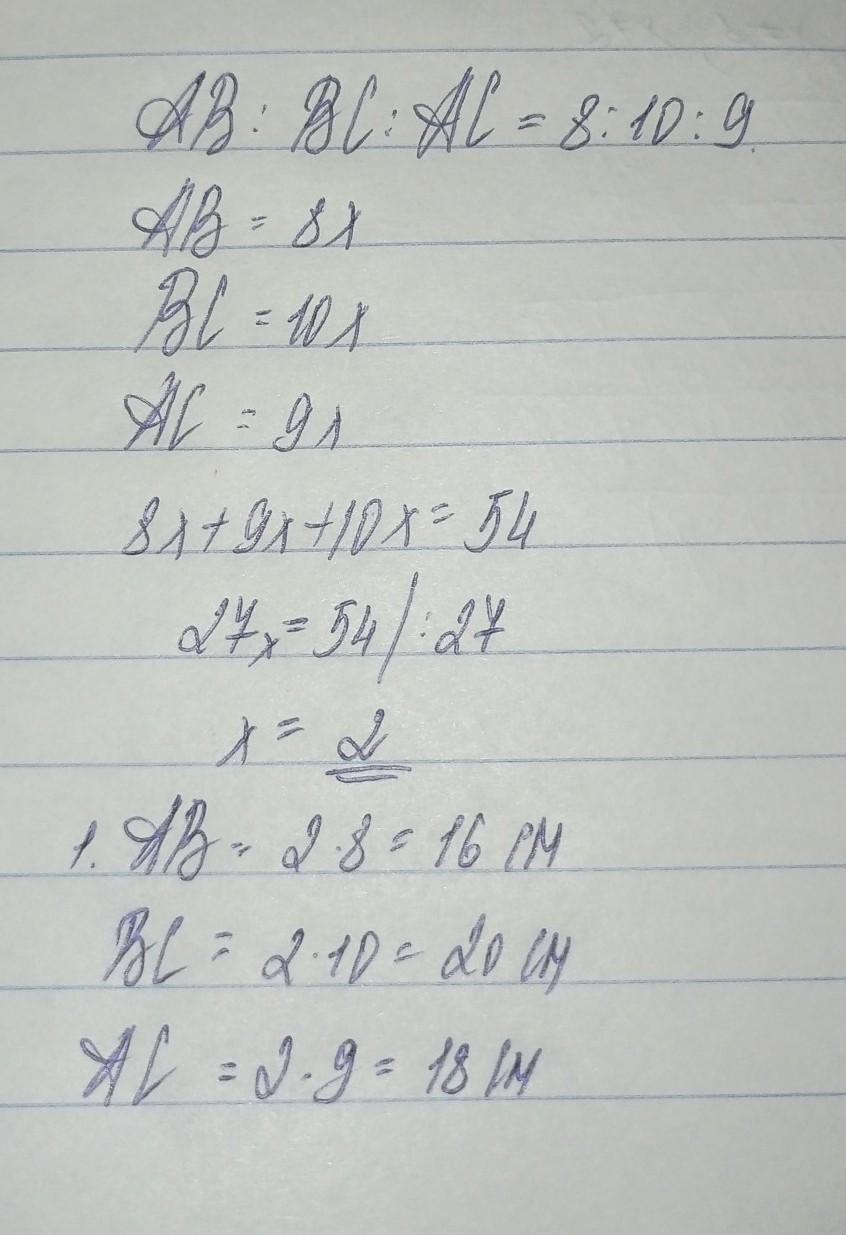 AB : BC : AC = 8 : 10 : 9
AB = 8x
BC = 10x
AC = 9x
8x + 9x + 10x = 54
27x = 54 | : 27
x = 2
1. AB = 2 · 8 = 16 см
BC = 2 · 10 = 20 см
AC = 2 · 9 = 18 см